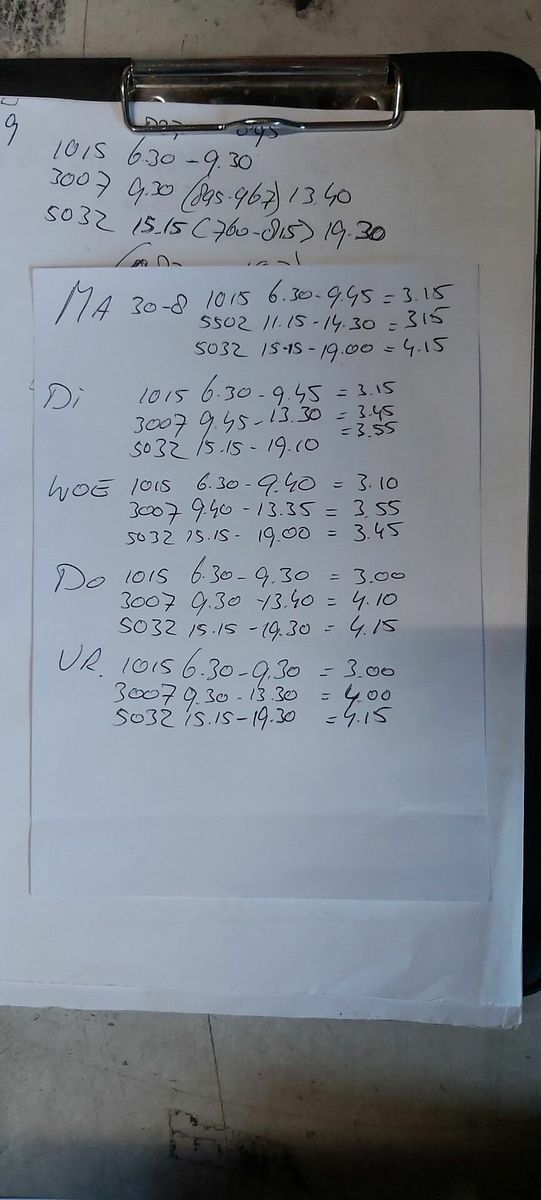 9
1015 6.30 - 9.30
3007 9.30 (895-967) 13.40
5032 15.15 (760-815) 19.30
MA 30-8 1015 6.30-9.45 = 3.15
5502 11.15-14.30 = 315
5032 15-15-19.00 = 4.15
Di 1015 6.30-9.45 = 3.15
3007 9.45-13.30 = 3.45
5032 15.15-19.10 = 3.55
WOE 1015 6.30-9.40 = 3.10
3007 9.40-13.35 = 3.55
5032 15.15-19.00 = 3.45
Do 1015 6.30-9.30 = 3.00
3007 9.30-13.40 = 4.10
5032 15.15-19.30 = 4.15
VR. 1015 6.30-9.30 = 3.00
3007 9.30-13.30 = 4.00
5032 15.15-19.30 = 4.15